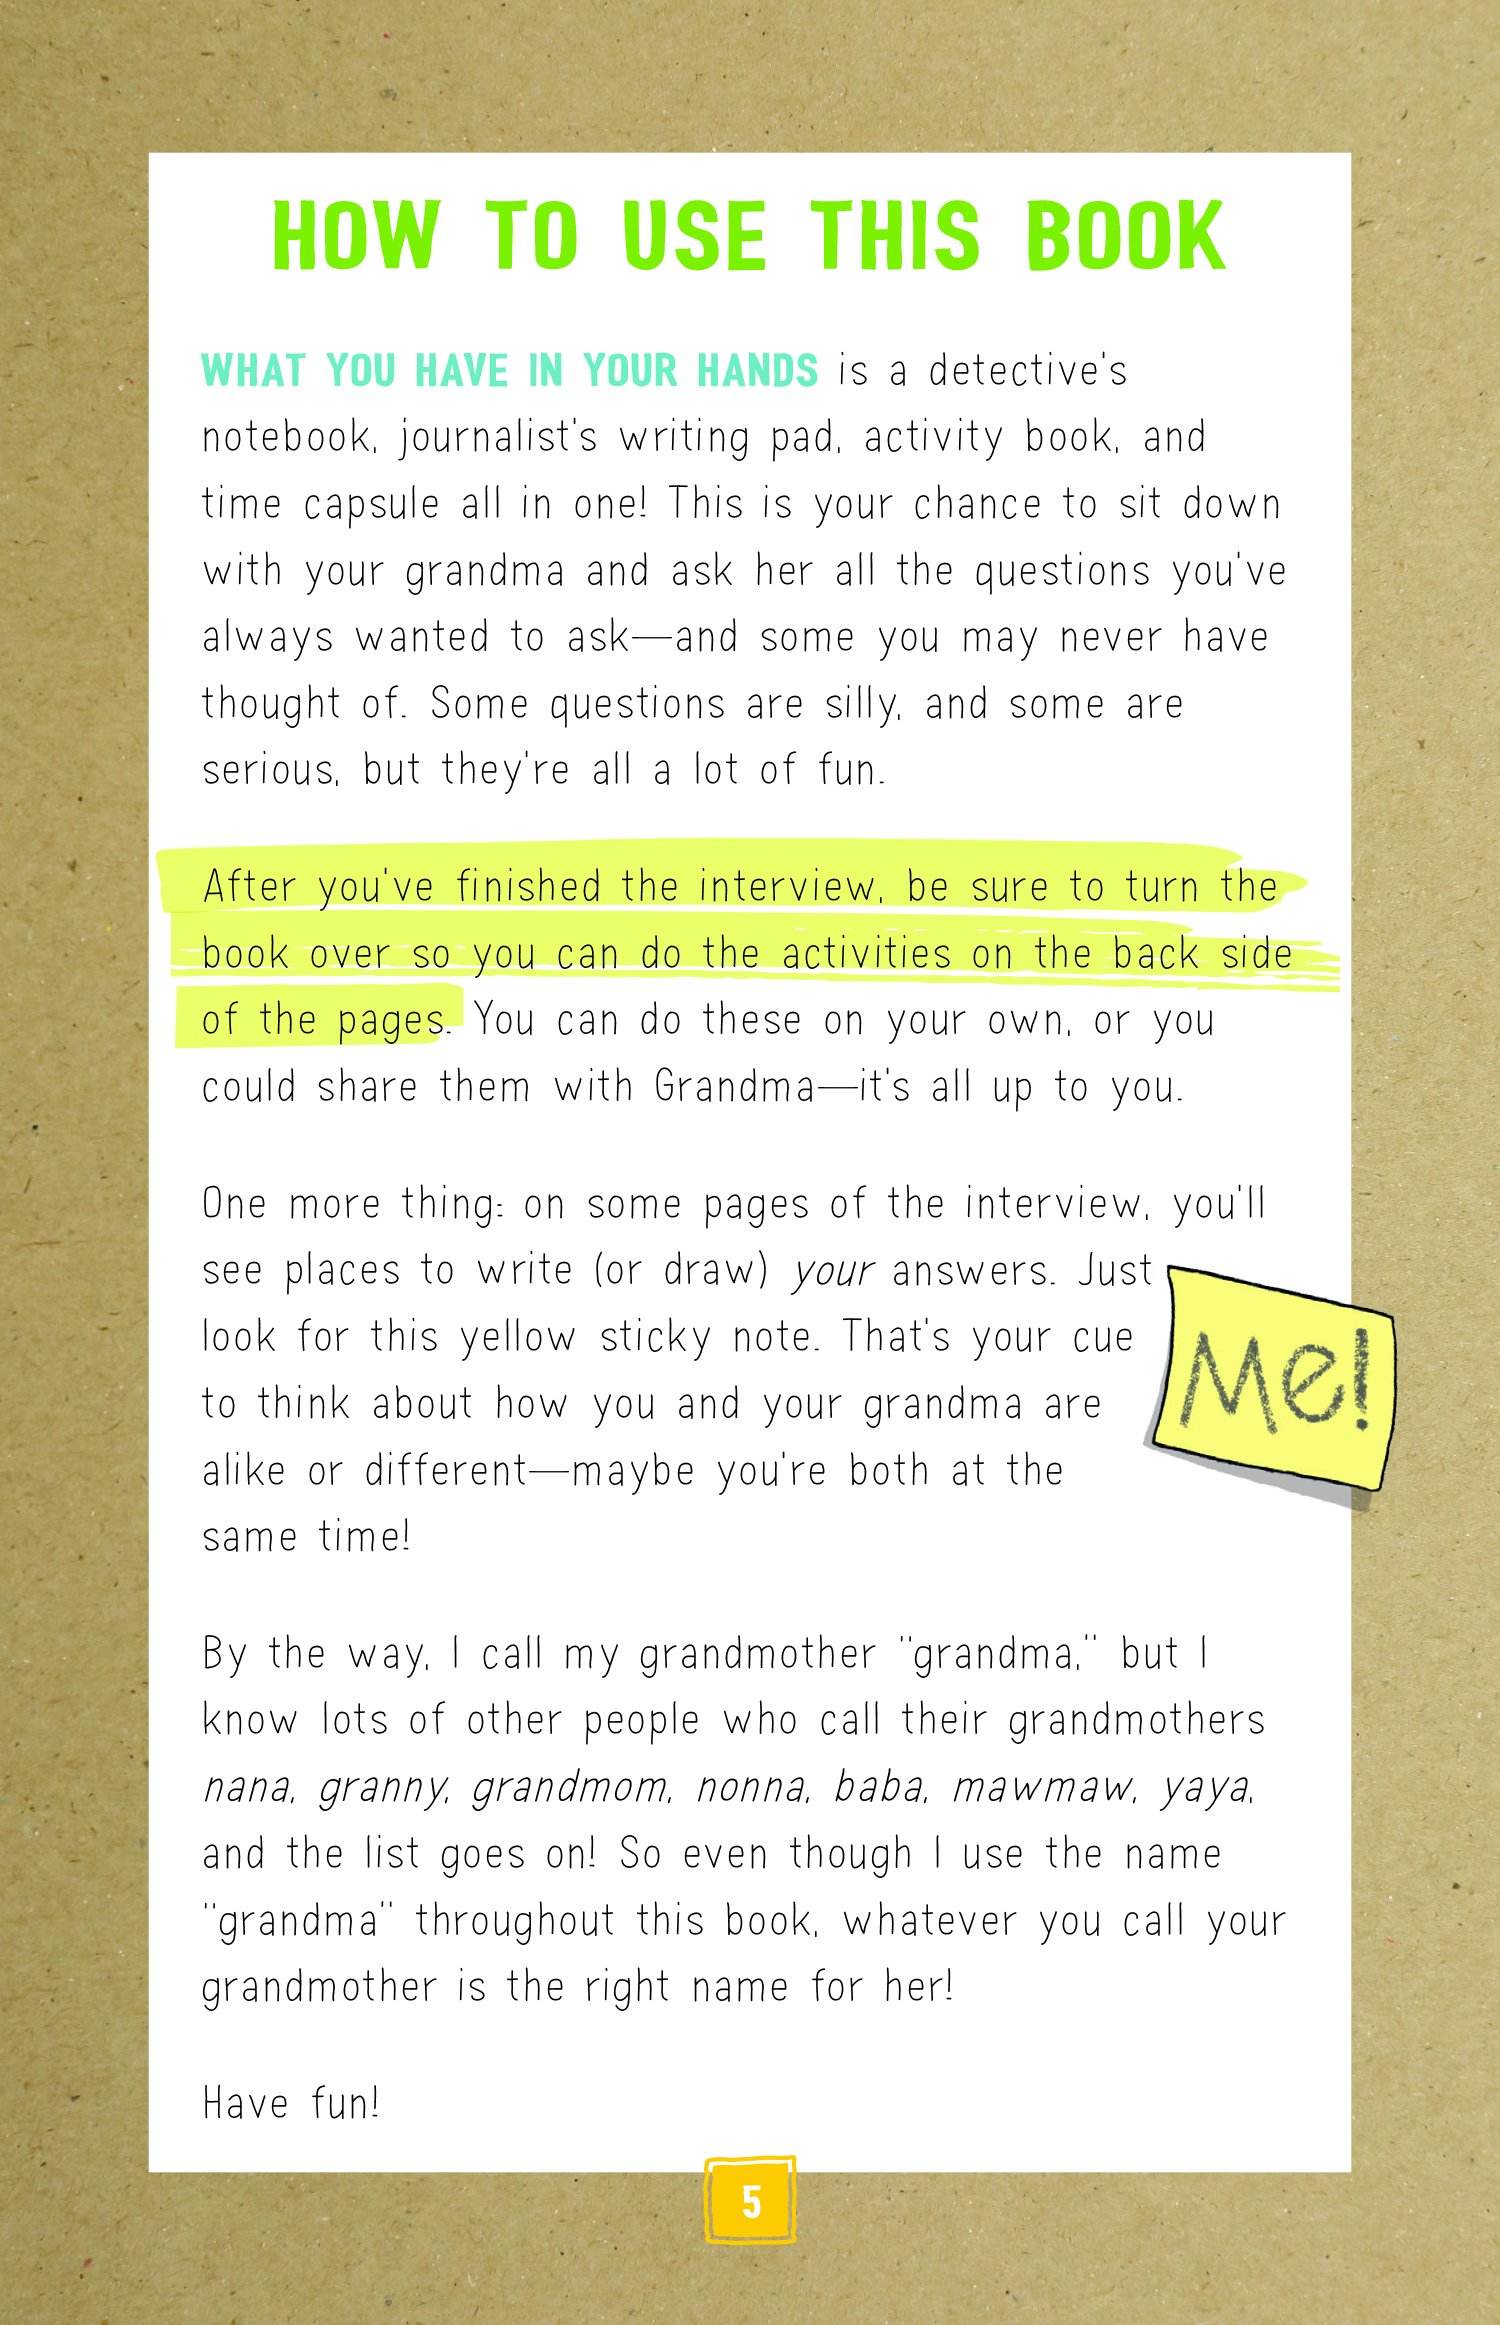 HOW TO USE THIS BOOK
WHAT YOU HAVE IN YOUR HANDS is a detective's
notebook, journalist's writing pad, activity book, and
time capsule all in one! This is your chance to sit down
with your grandma and ask her all the questions you've
always wanted to ask—and some you may never have
thought of. Some questions are silly, and some are
serious, but they're all a lot of fun.
After you've finished the interview, be sure to turn the
book over so you can do the activities on the back side
of the pages. You can do these on your own, or you
could share them with Grandma—it's all up to you.
One more thing: on some pages of the interview, you'll
see places to write (or draw) your answers. Just
look for this yellow sticky note. That's your cue
to think about how you and your grandma are
alike or different—maybe you're both at the
same time!
Me!
By the way, I call my grandmother "grandma," but I
know lots of other people who call their grandmothers
nana, granny, grandmom, nonna, baba, mawmaw, yaya,
and the list goes on! So even though I use the name
"grandma" throughout this book, whatever you call your
grandmother is the right name for her!
Have fun!
5